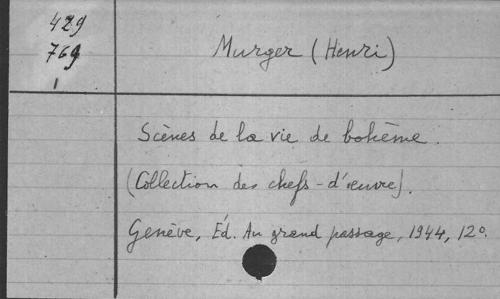 429
769
1
Murger (Henri)
Scènes de la vie de bohème.
(Collection des chefs-d'œuvre).
Genève, Éd. Au grand passage, 1944, 12°.